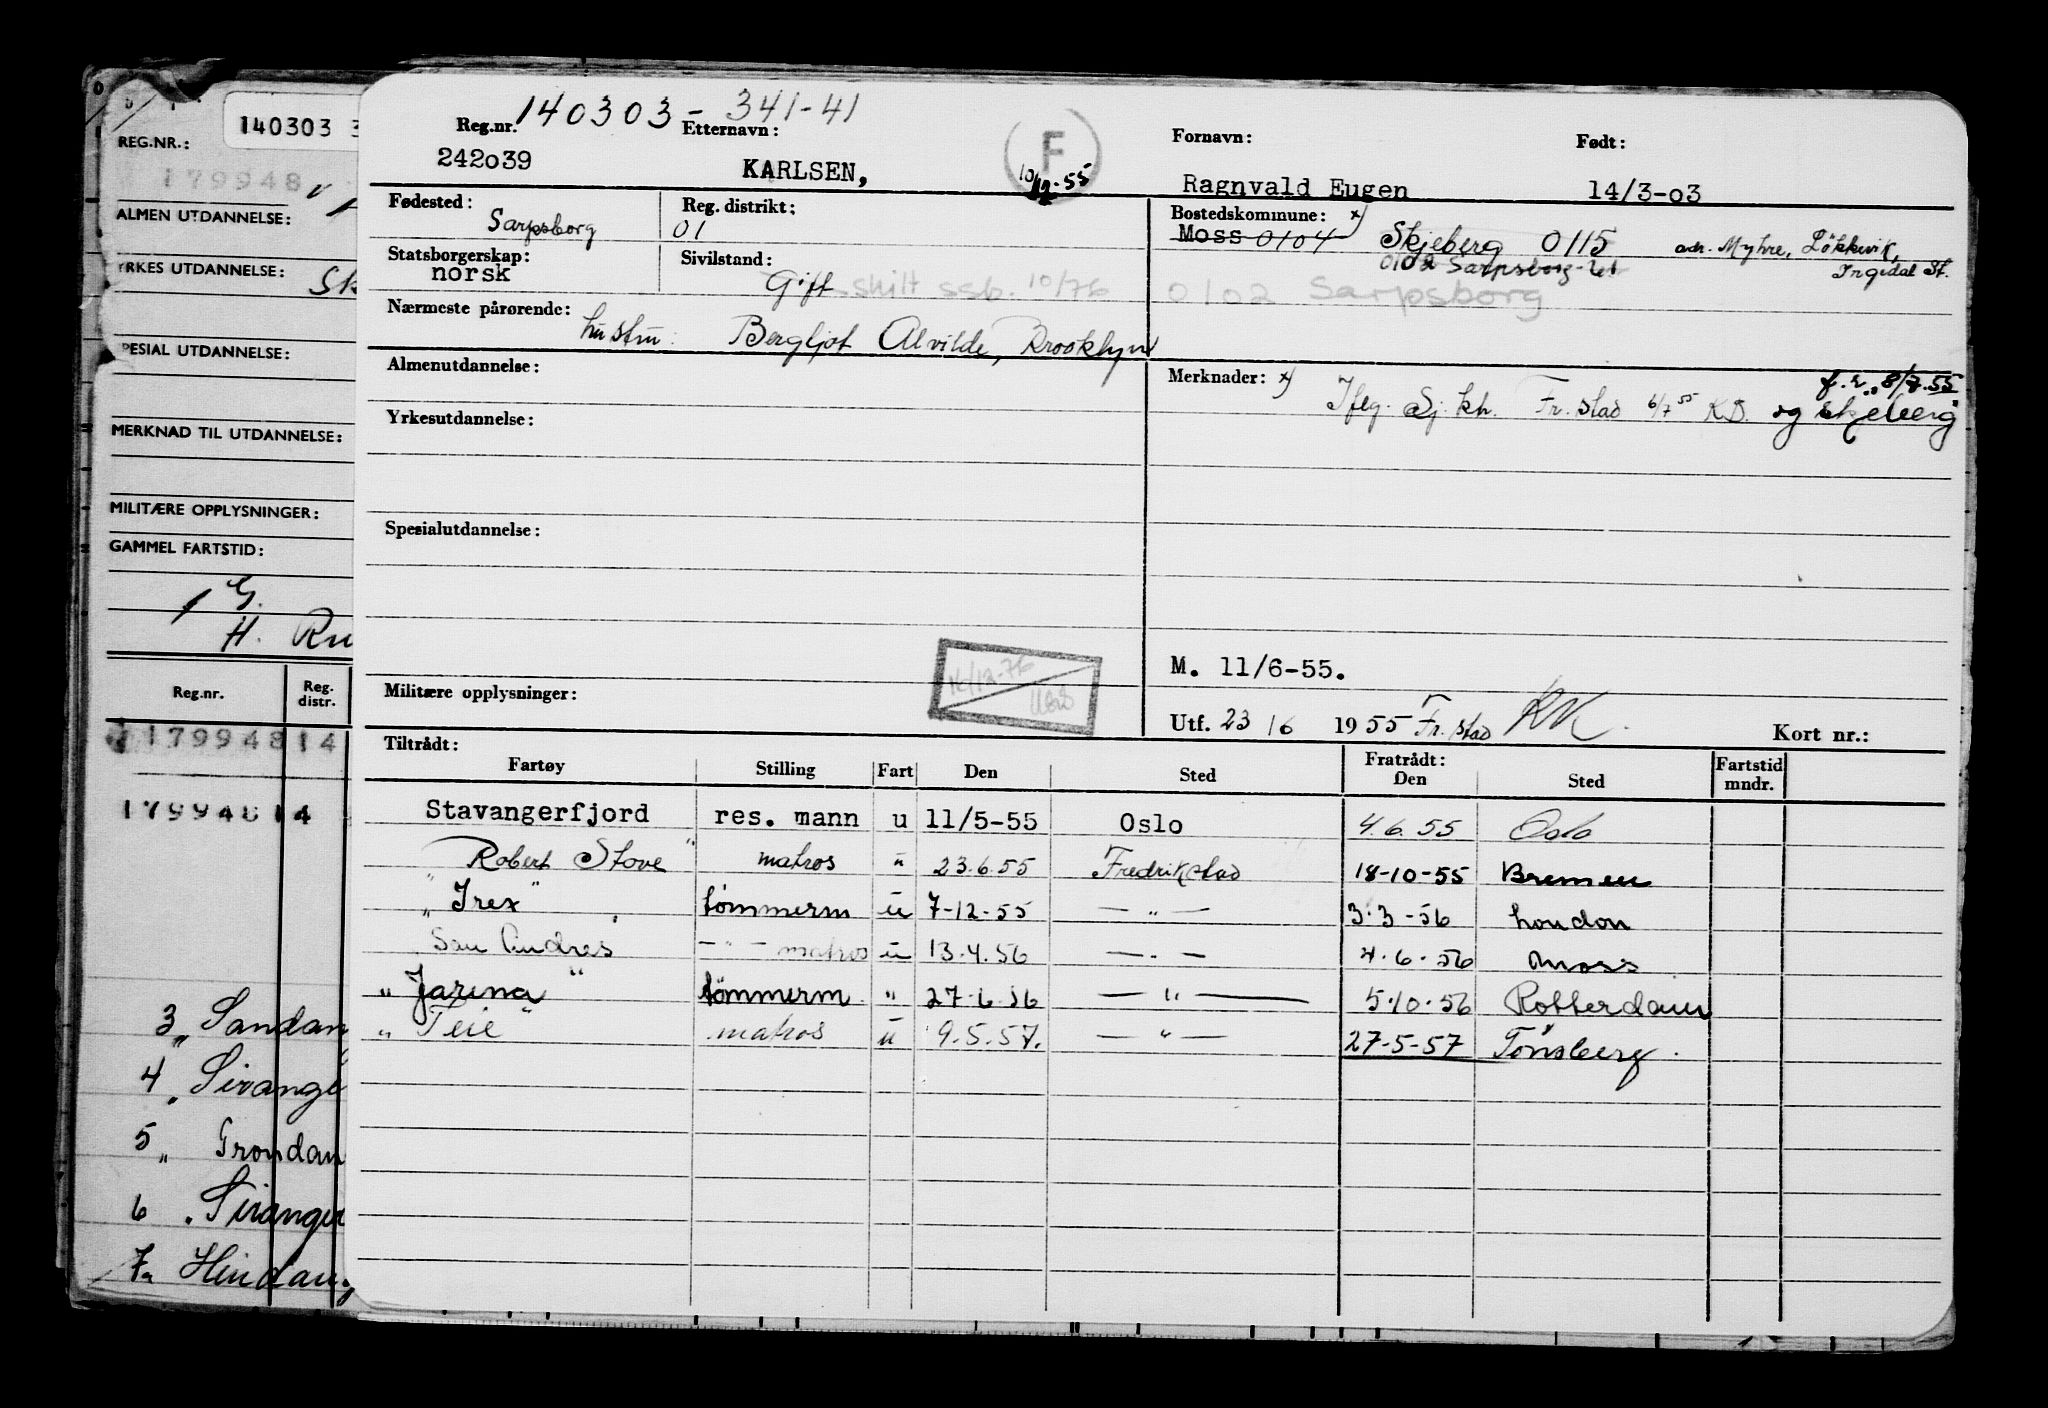 REG.NR.: 140303 3
179948
ALMEN UTDANNELSE:
YRKES UTDANNELSE: Sk
SPESIAL UTDANNELSE:
MERKNAD TIL UTDANNELSE:
MILITÆRE OPPLYSNINGER:
GAMMEL FARTSTID:
1 G.
H. Ru
Reg.nr. Reg. distr.
179948 14
179948 14
3 " Sandan
4 " Siranger
5 " Grondan
6 " Siranger
7 " Hindang
140303-341-41
Reg.nr. Etternavn: F Fornavn: Født:
242o39 KARLSEN, 10/12-55 Ragnvald Eugen 14/3-o3
Fødested: Sarpsborg Reg. distrikt: 01 Bostedskommune: x)
Moss 0104 Skjeberg 0115 adr. Myhre, Løkkevik,
Statsborgerskap: norsk Sivilstand: 0102 Sarpsborg Ingedal St.
Gift skilt ssb. 10/76 0102 Sarpsborg
Nærmeste pårørende: hustru: Bergljot Alvilde, Brooklyn
Almenutdannelse: Merknader: x) Ifлg. Sj.kt. Fr.stad 6/7 55 K.D. og Skjeberg f.r. 8/7.55
Yrkesutdannelse:
Spesialutdannelse:
14/12-76
M. 11/6-55.
Militære opplysninger: Utf. 23/6 1955 Fr.stad RK. Kort nr.:
Tiltrådt: Fratrådt:
Fartøy Stilling Fart Den Sted Den Sted Fartstid mndr.
Stavangerfjord res. mann u 11/5-55 Oslo 4.6.55 Oslo
" Robert Stove " matros " 23.6.55 Fredrikstad 18-10-55 Bremen
" Irex " tømmerm u 7-12-55 — " — 3.3-56 London
San Andres — " — matros u 13.4.56 — " — 4.6.56 Moss
" Jarena " tømmerm " 27.6.56 — " — 5.10.56 Rotterdam
" Teie " matros u 9.5.57. — " — 27-5-57 Tønsberg.